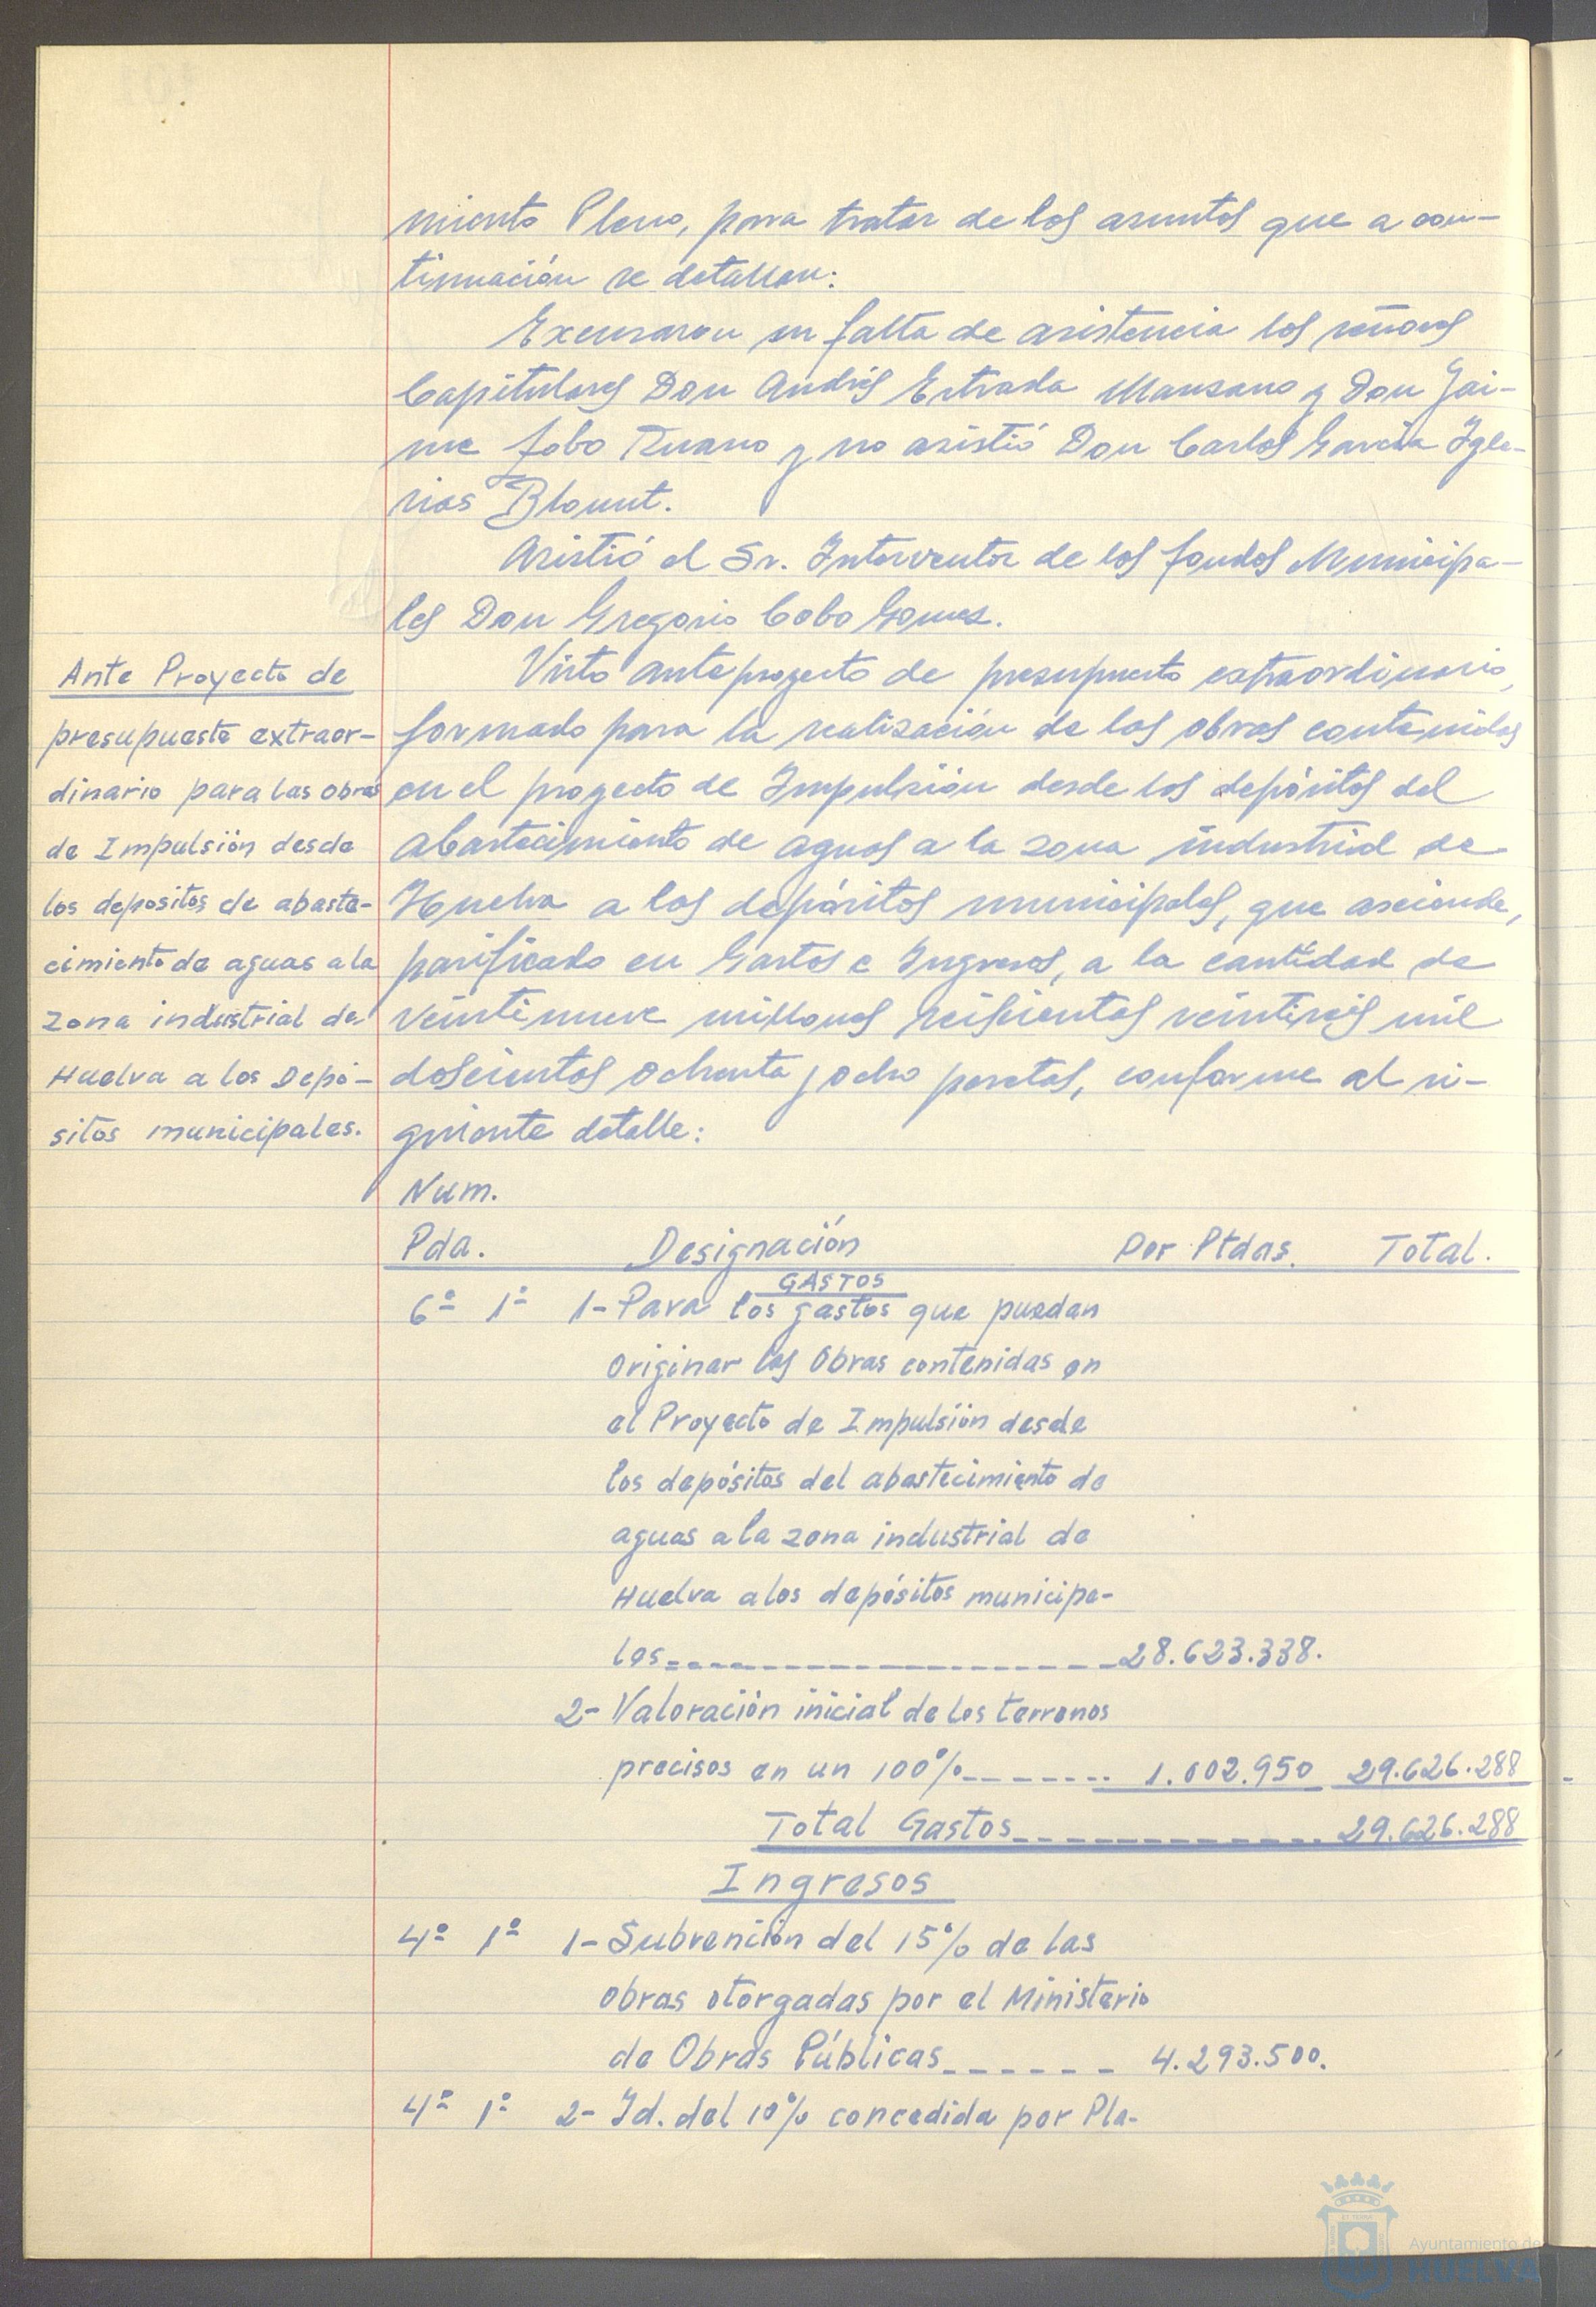 miento Pleno, para tratar de los asuntos que a con-
tinuación se detallan:
Excusaron su falta de asistencia los señores
Capitulares Don Andrés Estrada Manzano y Don Jai-
me Jobo Ruano y no asistió Don Carlos García Igle-
sias Blount.
Asistió el Sr. Interventor de los fondos Municipa-
les Don Gregorio Cobo Gomez.
Ante Proyecto de
presupuesto extraor-
dinario para las obras
de Impulsión desde
los depositos de abaste-
cimiento de aguas a la
zona industrial de
Huelva a los Depó-
sitos municipales.
Visto anteproyecto de presupuesto extraordinario,
formado para la realización de las obras contenidas
en el proyecto de Impulsión desde los depósitos del
abastecimiento de aguas a la zona industrial de
Huelva a los depósitos municipales, que asciende,
parificado en Gastos e Ingresos, a la cantidad de
veintinueve millones seiscientas veintiseis mil
doscientas ochenta y ocho pesetas, conforme al si-
guiente detalle:
Num.
Pda. Designación Por Ptdas. Total.
GASTOS
6º 1º 1- Para los gastos que puedan
originar las Obras contenidas en
el Proyecto de Impulsión desde
los depósitos del abastecimiento de
aguas a la zona industrial de
Huelva a los depósitos municipa-
les 28.623.338.
2- Valoración inicial de los terrenos
precisos en un 100% 1.002.950 29.626.288
Total Gastos 29.626.288
Ingresos
4º 1º 1- Subvención del 15% de las
obras otorgadas por el Ministerio
de Obras Públicas 4.293.500.
4º 1º 2- Id. del 10% concedida por Pla-
Ayuntamiento de
HUELVA